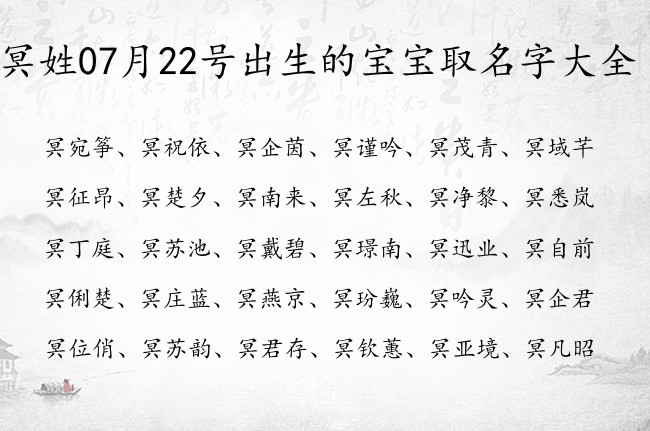 冥姓07月22号出生的宝宝取名字大全
冥宛筝、冥祝依、冥企茵、冥谨吟、冥茂青、冥域芊
冥征昂、冥楚夕、冥南来、冥左秋、冥净黎、冥悉岚
冥丁庭、冥苏池、冥戴碧、冥璟南、冥迅业、冥自前
冥俐楚、冥庄蓝、冥燕京、冥玢巍、冥吟灵、冥企君
冥位俏、冥苏韵、冥君存、冥钦蕙、冥亚境、冥凡昭